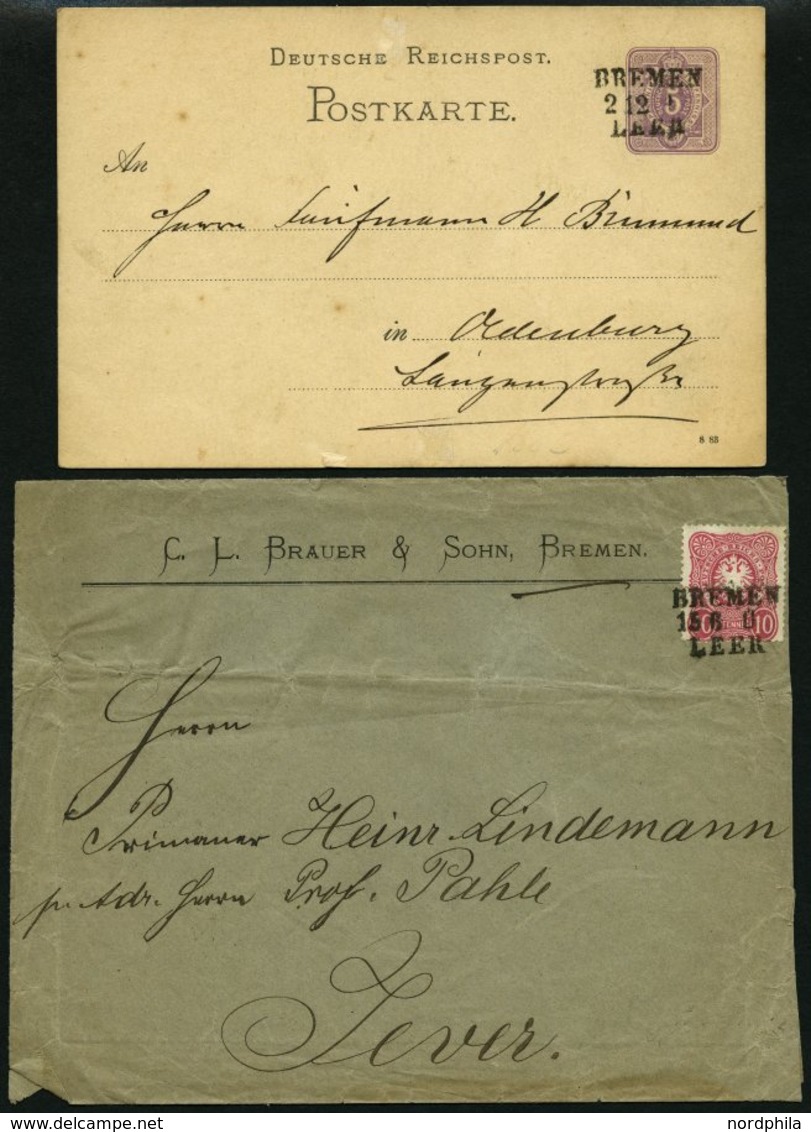 DEUTSCHE REICHSPOST.
POSTKARTE.
BREMEN
2 12
LEER
5
An
Herrn Kaufmann H Brumund
in Oldenburg
Langenstraße
8 83
C. L. BRAUER & SOHN, BREMEN.
BREMEN
15 6 II
LEER
10
Herrn
Primaner Heinr. Lindemann
pr. Adr. Herrn Prof. Pahle
Jever.
nordphila